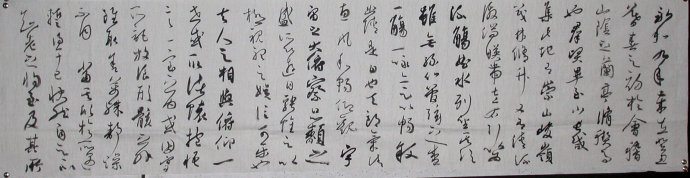 永和九年歲在癸丑
暮春之初於會稽
山陰之蘭亭脩禊事
也羣賢畢至少長咸
集此地有崇山峻嶺
茂林脩竹又有清流
激湍映帶左右引以為
流觴曲水列坐其次
雖無絲竹管弦之盛
一觴一詠亦足以暢敘
幽情是日也天朗氣清
惠風和暢仰觀宇
宙之大俯察品類之
盛所以遊目騁懷足以
極視聽之娛信可樂也
夫人之相與俯仰一
世或取諸懷抱悟
言一室之內或因寄
所託放浪形骸之外
雖趣舍萬殊靜躁
不同當其欣於所遇
暫得於己快然自足不
知老之將至及其所